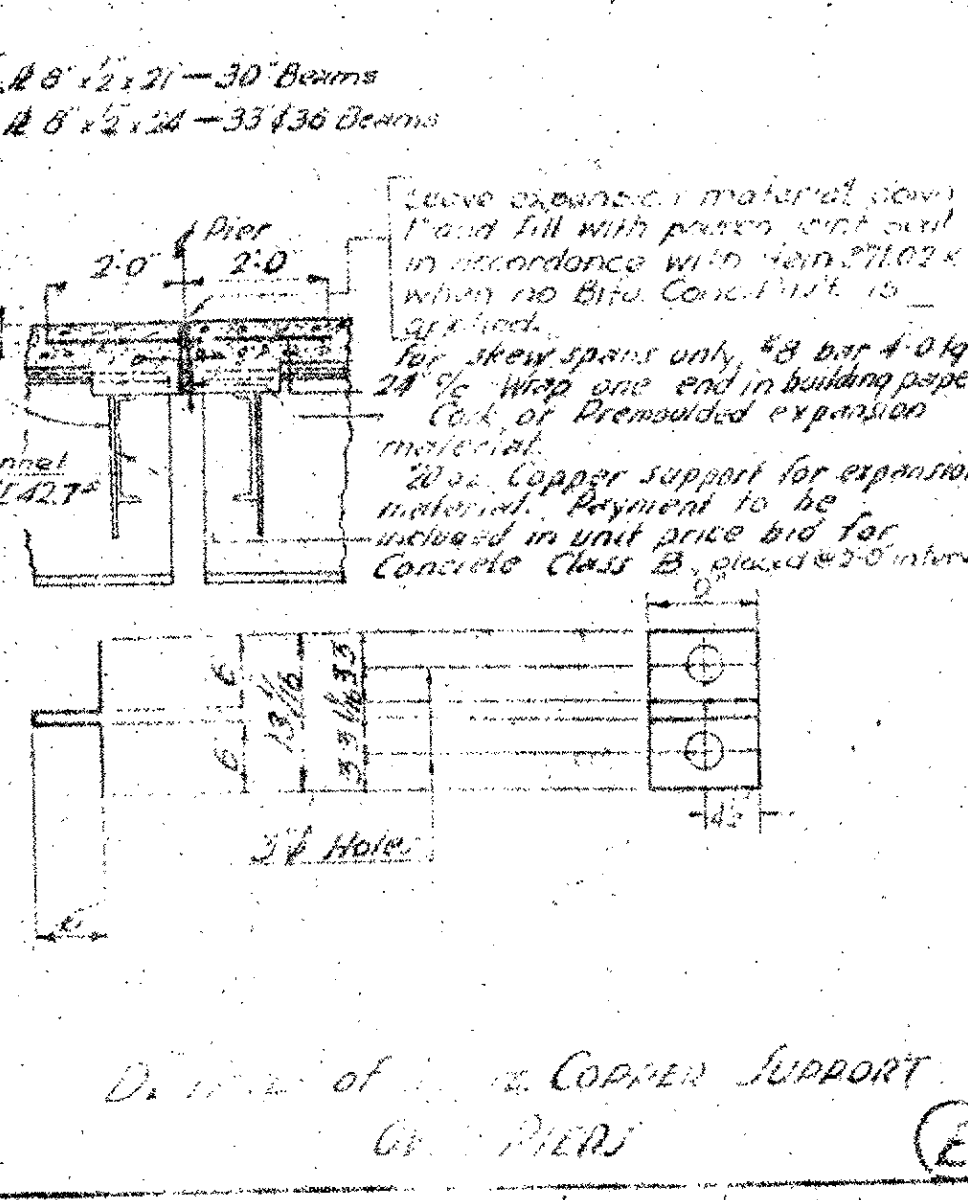 ℄ 8" x ½" x 21 — 30" Beams
℄ 8" x ½" x 24 — 33 & 36 Beams
Pier
2'-0" 2'-0"
Leave expansion material down
1" and fill with joint seal
in accordance with Item 
when no Bitu. Conc. is
applied.
For skew spans only, #8 bar 4'-0 lg
24" o/c Wrap one end in building pape
Cork or Premoulded expansion
material.
20 oz. Copper support for expansion
material. Payment to be
included in unit price bid for
Concrete Class B, placed @ 2'-0 interv
42.7#
9"
6
6
13 1/16
3 3 1/16 3 3
4½"
Hole
of COPPER SUPPORT
PIERS
E